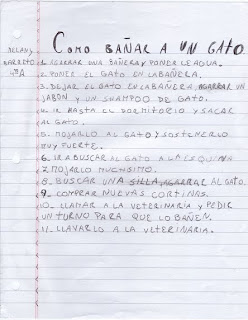 MELANY
BARRETO
4ºA
COMO BAÑAR A UN GATO
1. AGARRAR UNA BAÑERA Y PONERLE AGUA.
2. PONER EL GATO EN LA BAÑERA.
3. DEJAR EL GATO EN LA BAÑERA, AGARRAR UN
JABÓN Y UN SHAMPOO DE GATO.
4. IR HASTA EL DORMITORIO Y SACAR
AL GATO.
5. MOJARLO AL GATO Y SOSTENERLO
MUY FUERTE.
6. IR A BUSCAR AL GATO A LA ESQUINA
7. MOJARLO MUCHISIMO.
8. BUSCAR UNA SILLA, AGARRAR AL GATO.
9. COMPRAR NUEVAS CORTINAS.
10. LLAMAR A LA VETERINARIA Y PEDIR
UN TURNO PARA QUE LO BAÑEN.
11. LLAVARLO A LA VETERINARIA.